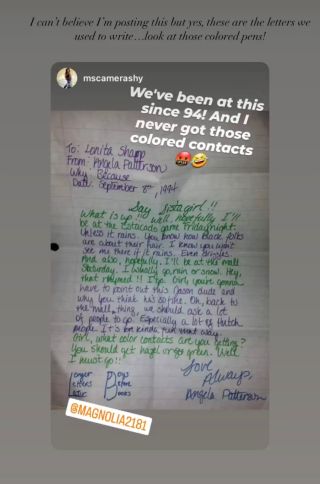 I can't believe I'm posting this but yes, these are the letters we
used to write...look at those colored pens!
mscamerashy
We've been at this
since 94! And I
never got those
colored contacts
🤬🤣
To: Lonita Sharp
From: Angela Patterson
Why: Because
Date: September 8th, 1994
Say Sistagirl!!
What is up!! Well, hopefully I'll
be at the Estacado game Friday night.
Unless it rains. You know how black folks
are about their hair. I know you won't
see me there if it rains. Even drizzles.
And also, hopefully, I'll be at the mall
Saturday. I usually go, rain or snow. Hey,
that rhymed!! I'll go. Girl, you're gonna
have to point out this Jason dude and
why you think he's so fine. Oh, back to
the mall thing, we should ask a lot
of people to go. Especially a lot of Hutch
people. It's kinda fun that way.
Girl, what color contacts are you getting?
You should get hazel or go green. Well
I must go!!
Love
Always,
Angela Patterson
Longer Boys
Letters Before
Later Books
@MAGNOLIA2181